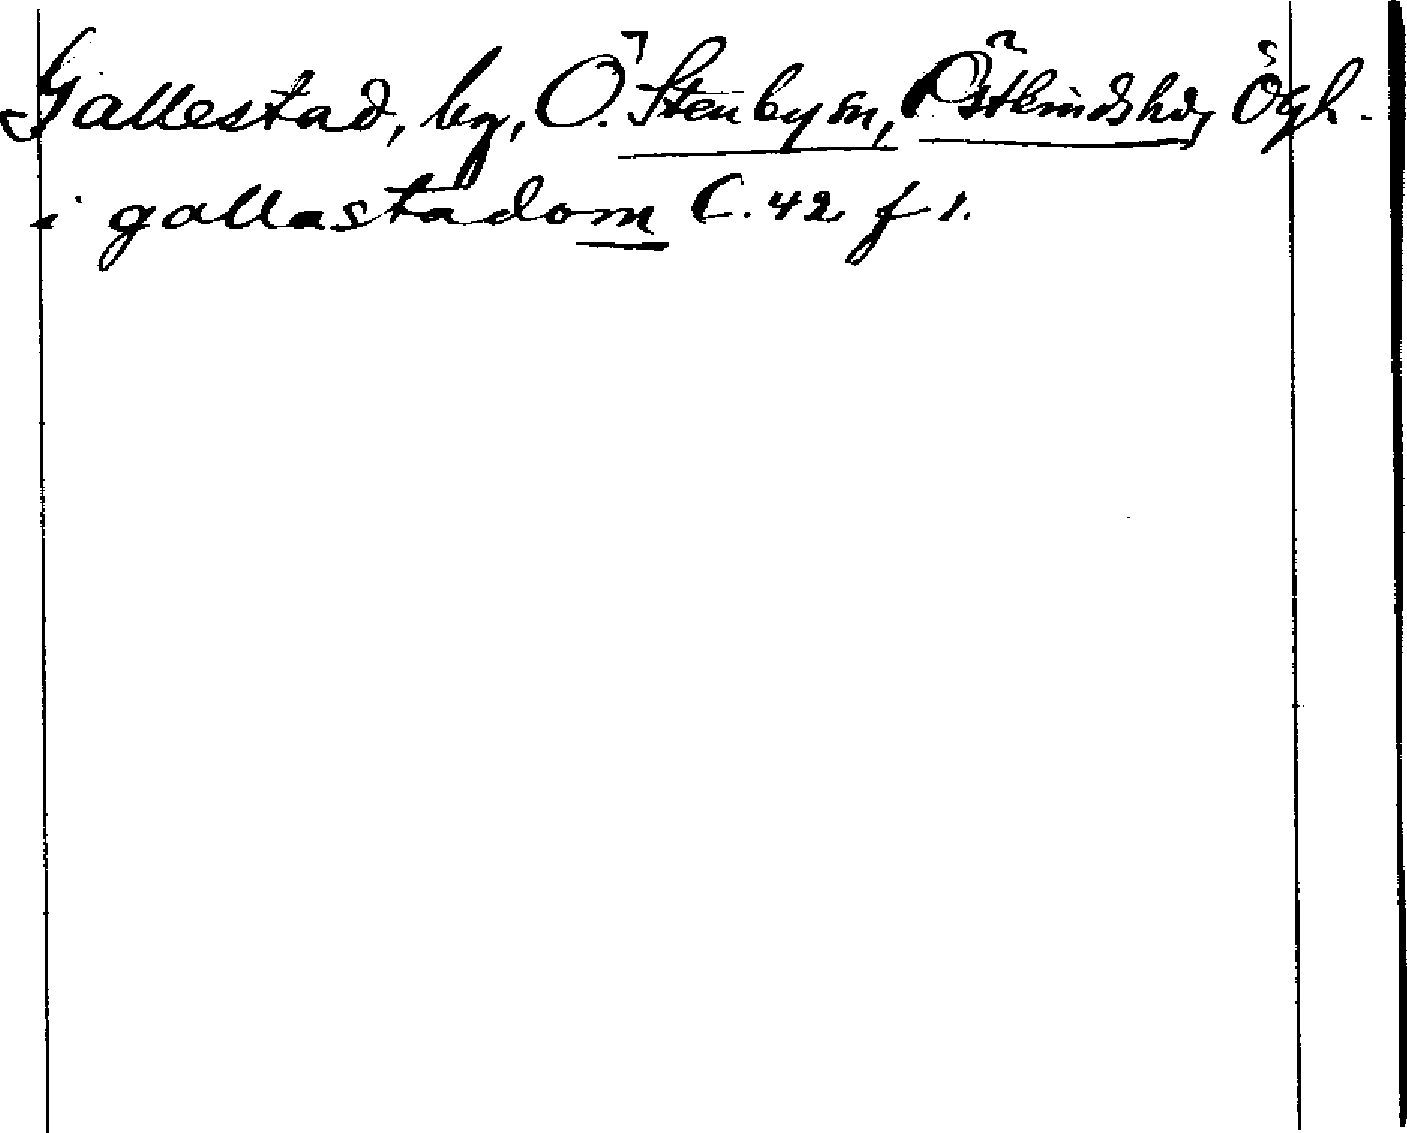 Gallestad, by, Ö. Stenby sn, Östkinds hd, Ögl.
i gallastadom C. 42 f 1.